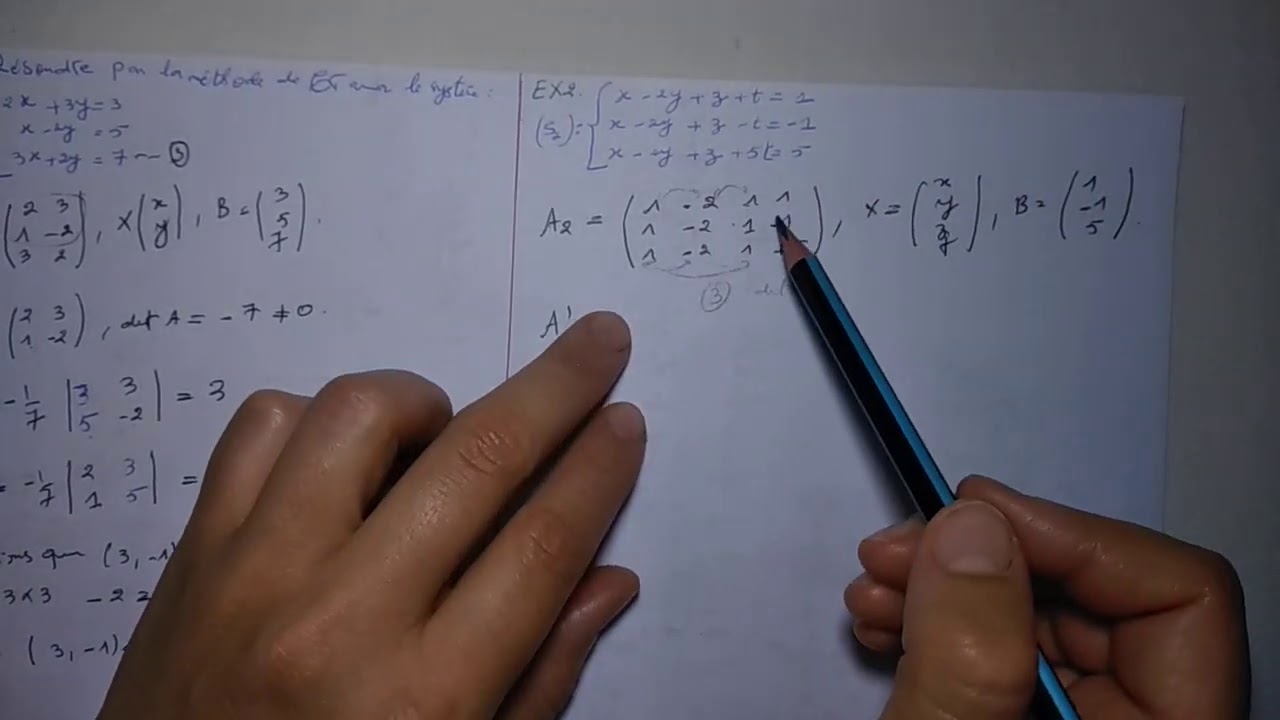 Résoudre par la méthode de Cramer le système :
2x + 3y = 3
x - 2y = 5
3x + 2y = 7 — ③
( 2 3 ; 1 -2 ; 3 2 ), X ( x ; y ), B = ( 3 ; 5 ; 7 ).
( 2 3 ; 1 -2 ), det A = -7 ≠ 0.
-1/7 | 3 3 ; 5 -2 | = 3
= -1/7 | 2 3 ; 1 5 | =
que (3, -1)
3×3 - 2
(3, -1)
EX2.
(S2): { x - 2y + z + t = 1
x - 2y + z - t = -1
x - 2y + z + 5t = 5
A2 = ( 1 -2 1 1 ; 1 -2 1 -1 ; 1 -2 1 ), X = ( x ; y ; z ), B = ( 1 ; -1 ; 5 ).
③ det
A'